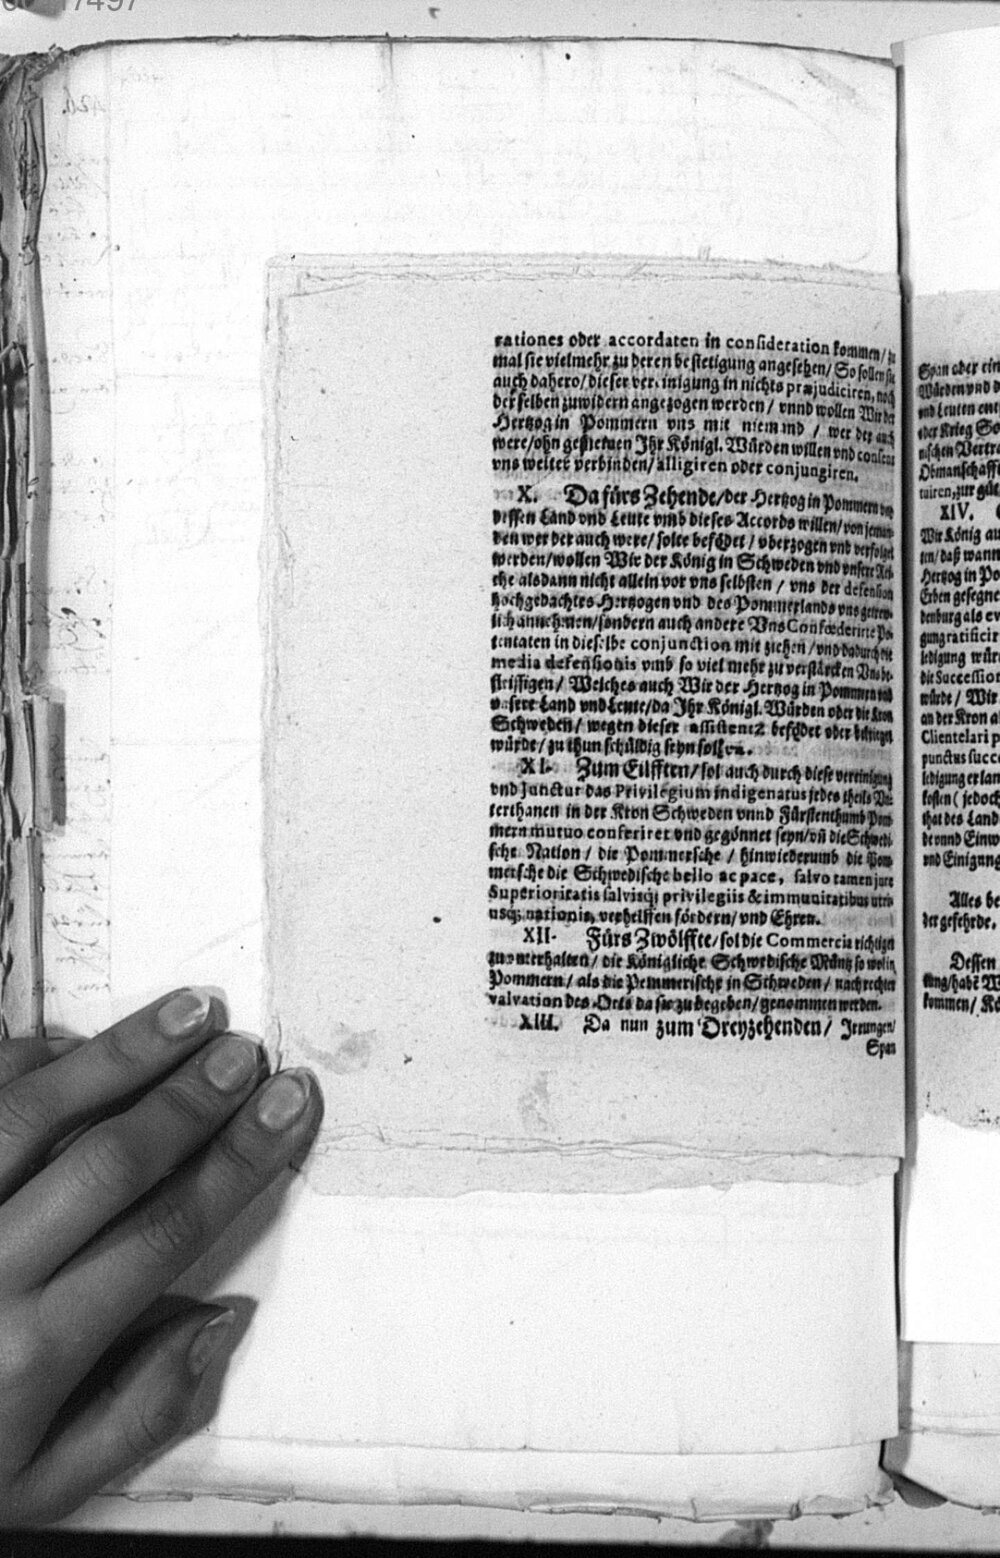 rationes oder accordaten in consideration kommen/ zu
mal sie vielmehr zu deren bestetigung angesehen/ So sollen sie
auch dahero/ dieser vereinigung in nichts præjudiciren, noch
derselben zuwidern angezogen werden/ vnnd wollen Wir der
Hertzog in Pommern vns mit niemand / wer der auch
were/ ohn Ihr Königl. Würden willen vnd consens
vns weiter verbinden/ alligiren oder conjungiren.
X. Da fürs Zehende/ der Hertzog in Pommern vnd
dessen Land vnd Leute vmb dieses Accords willen/ von jeman-
den wer der auch were/ solte befehdet / vberzogen vnd verfolget
werden/ wollen Wir der König in Schweden vnd vnsere Rei-
che alsdann nicht allein vor vns selbsten / vns der defension
hochgedachtes Hertzogen vnd des Pommerlands vns getrew-
lich annehmen/ sondern auch andere Vns Confœderirte Po-
tentaten in dieselbe conjunction mit ziehen / vnd dadurch die
media defensionis vmb so viel mehr zu verstärcken Vns be-
fleissigen/ Welches auch Wir der Hertzog in Pommern vnd
vnsere Land vnd Leute/ da Ihr Königl. Würden oder die Kron
Schweden/ wegen dieser assistentz befehdet oder bekrieget
würde/ zu thun schüldig seyn sollen.
XI. Zum Eilfften/ sol auch durch diese vereinigung
vnd Junctur das Privilegium indigenatus jedes theils Vn-
terthanen in der Kron Schweden vnnd Fürstenthumb Pom-
mern mutuo conferiret vnd gegönnet seyn/ vñ die Schwedi-
sche Nation / die Pommersche / hinwiederumb die Pom-
mersche die Schwedische bello ac pace, salvo tamen jure
Superioritatis salvisq́; privilegiis & immunitatibus utri-
usq; nationis, verhelffen fördern/ vnd Ehren.
XII. Fürs Zwölffte/ sol die Commercia richtig
zu vnterhalten/ die Königliche Schwedische Müntz so wol in
Pommern/ als die Pommerische in Schweden/ nach rechter
valvation des Orts da sie zu begeben/ genommen werden.
XIII. Da nun zum Dreyzehenden/ Irrungen/
Span
Span oder ein
Würden vnd
vnd Leuten ent
oder Krieg So
nischen Vertra
Obmanschafft
tuiren, zur güt
XIV.
Wir König au
ten/ daß wann
Hertzog in Po
Erben gesegne
denburg als ev
gung ratificir
ledigung wür
die Succession
würde/ Wir
an der Kron a
Clientelari p
punctus succe
ledigung erlan
kosten ( jedoch
that des Land
de vnnd Einw
vnd Einigung
Alles be
der gefehrde.
Dessen
kommen/ Kö